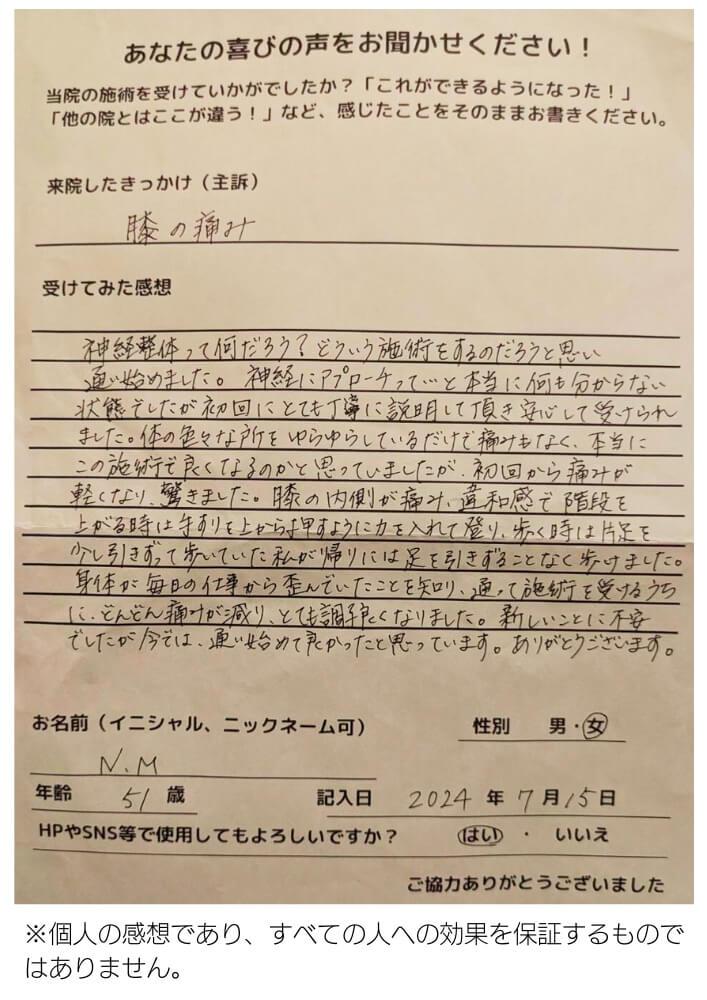 あなたの喜びの声をお聞かせください！
当院の施術を受けていかがでしたか？「これができるようになった！」
「他の院とはここが違う！」など、感じたことをそのままお書きください。
来院したきっかけ（主訴）
膝の痛み
受けてみた感想
神経整体って何だろう？どういう施術をするのだろうと思い
通い始めました。神経にアプローチっていと本当に何も分からない
状態でしたが初回にとても丁寧に説明して頂き安心して受けられ
ました。体の色々な所をゆらゆらしているだけで痛みもなく、本当に
この施術で良くなるのかと思っていましたが、初回から痛みが
軽くなり、驚きました。膝の内側が痛み、違和感で階段を
上がる時は手すりを上から押すように力を入れて登り、歩く時は片足を
少し引きずって歩いていた私が帰りには足を引きずることなく歩けました。
身体が毎日の仕事から歪んでいたことを知り、通って施術を受けるうち
に、どんどん痛みが減り、とても調子良くなりました。新しいことに不安
でしたが今では、通い始めて良かったと思っています。ありがとうございます。
お名前（イニシャル、ニックネーム可） 性別 男・女
N.M
年齢 51 歳 記入日 2024 年 7 月 15 日
HPやSNS等で使用してもよろしいですか？ はい ・ いいえ
ご協力ありがとうございました
※個人の感想であり、すべての人への効果を保証するもので
はありません。